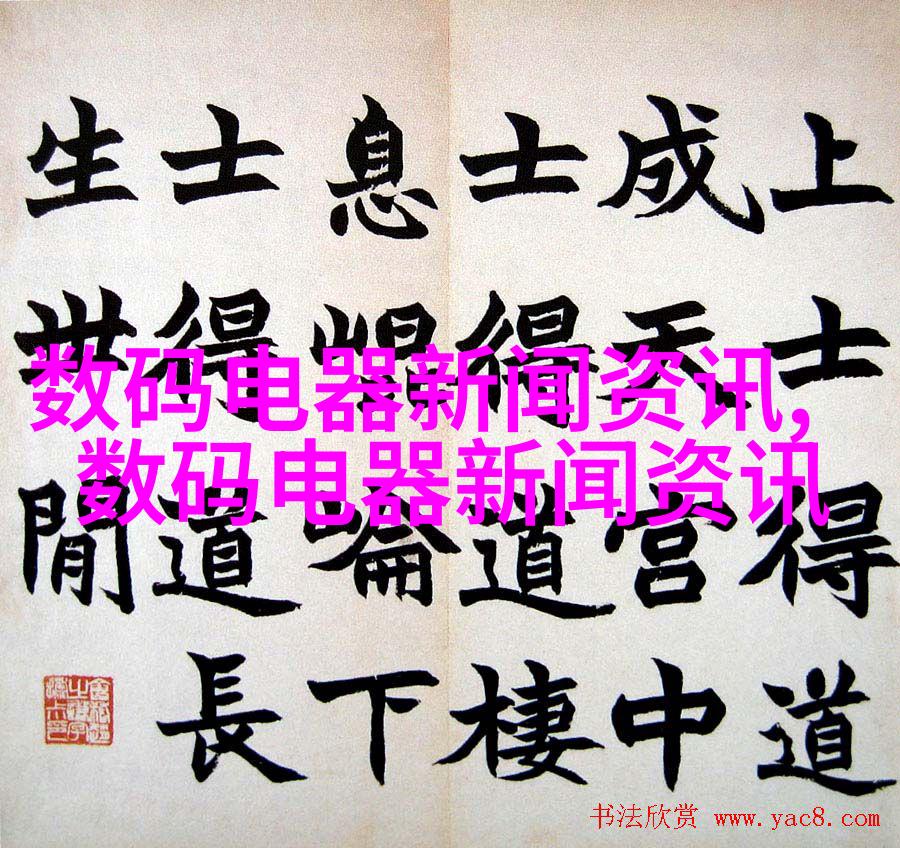 上士得道
成天宫中
士得道棲
息崐崘下
士得道長
生世閒
数码电器新闻资讯,
数码电器新闻资讯
书法欣赏 www.yac8.com